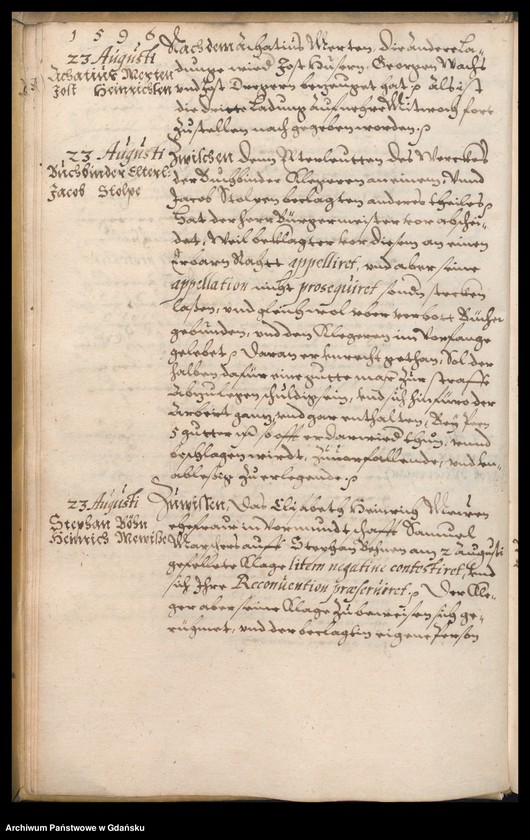 1 5 9 6
23 Augusti
Achatius Merten
Jost Heinrichsen
Nachdem Achatius Merten, die andere La-
dunge wied Jost Hüsern, Georgen Wachs
und Jost Dreyern bezeuget hat, Als ist
die dritte Ladung auf nehre Mitwoch fort
zustellen nachgegeben worden.
23 Augusti
Buchbinder Elterl:
Jacob Stolpe
Zwischen denn Alterleutten des Werckes
der Buchbinder Klegeren an einem, Vnnd
Jacob Stolpen beclagten anderes theiles
Hat der Herr Bürgermeister vor abschei-
det, Weil beklagter vor diesem an einen
Erbarn Rahtt appelliret, vnd aber seine
appellation nicht prosequiret sondn stecken
laßen, vnd gleichwol vber verbott Bücher
gebunden, vnd den Klegeren im Vorfange
gelebet, Daran er unrecht gethan, Sol der
halben dafür eine gutte marck zur straffe
Abzulegen schuldig sein, vnd sich hinfüro der
Arbeit gantz vnd gar enthalten, Bey peen
5 gutter so offt er darwied thun, vnnd
beschlagen wirdt, zuuorfallende, vnd un-
ablessig zu erlegende.
23 Augusti
Stephan Böhn
Heinrich Mewiße
Zuwißen, Das Elisabeth Heinrich Meuren
ehefraw in Vormundtschafft Samuel
auff Stephan Bohnen am 2 Augusti
gestellete Klage litem negatiue contestiret, vnd
sich Ihre Reconuention præseruiret. Der Kle-
ger aber seine Klage zubeweisen sich ge-
rühmet, vnd der beclagtin eigene Person
Archiwum Państwowe w Gdańsku